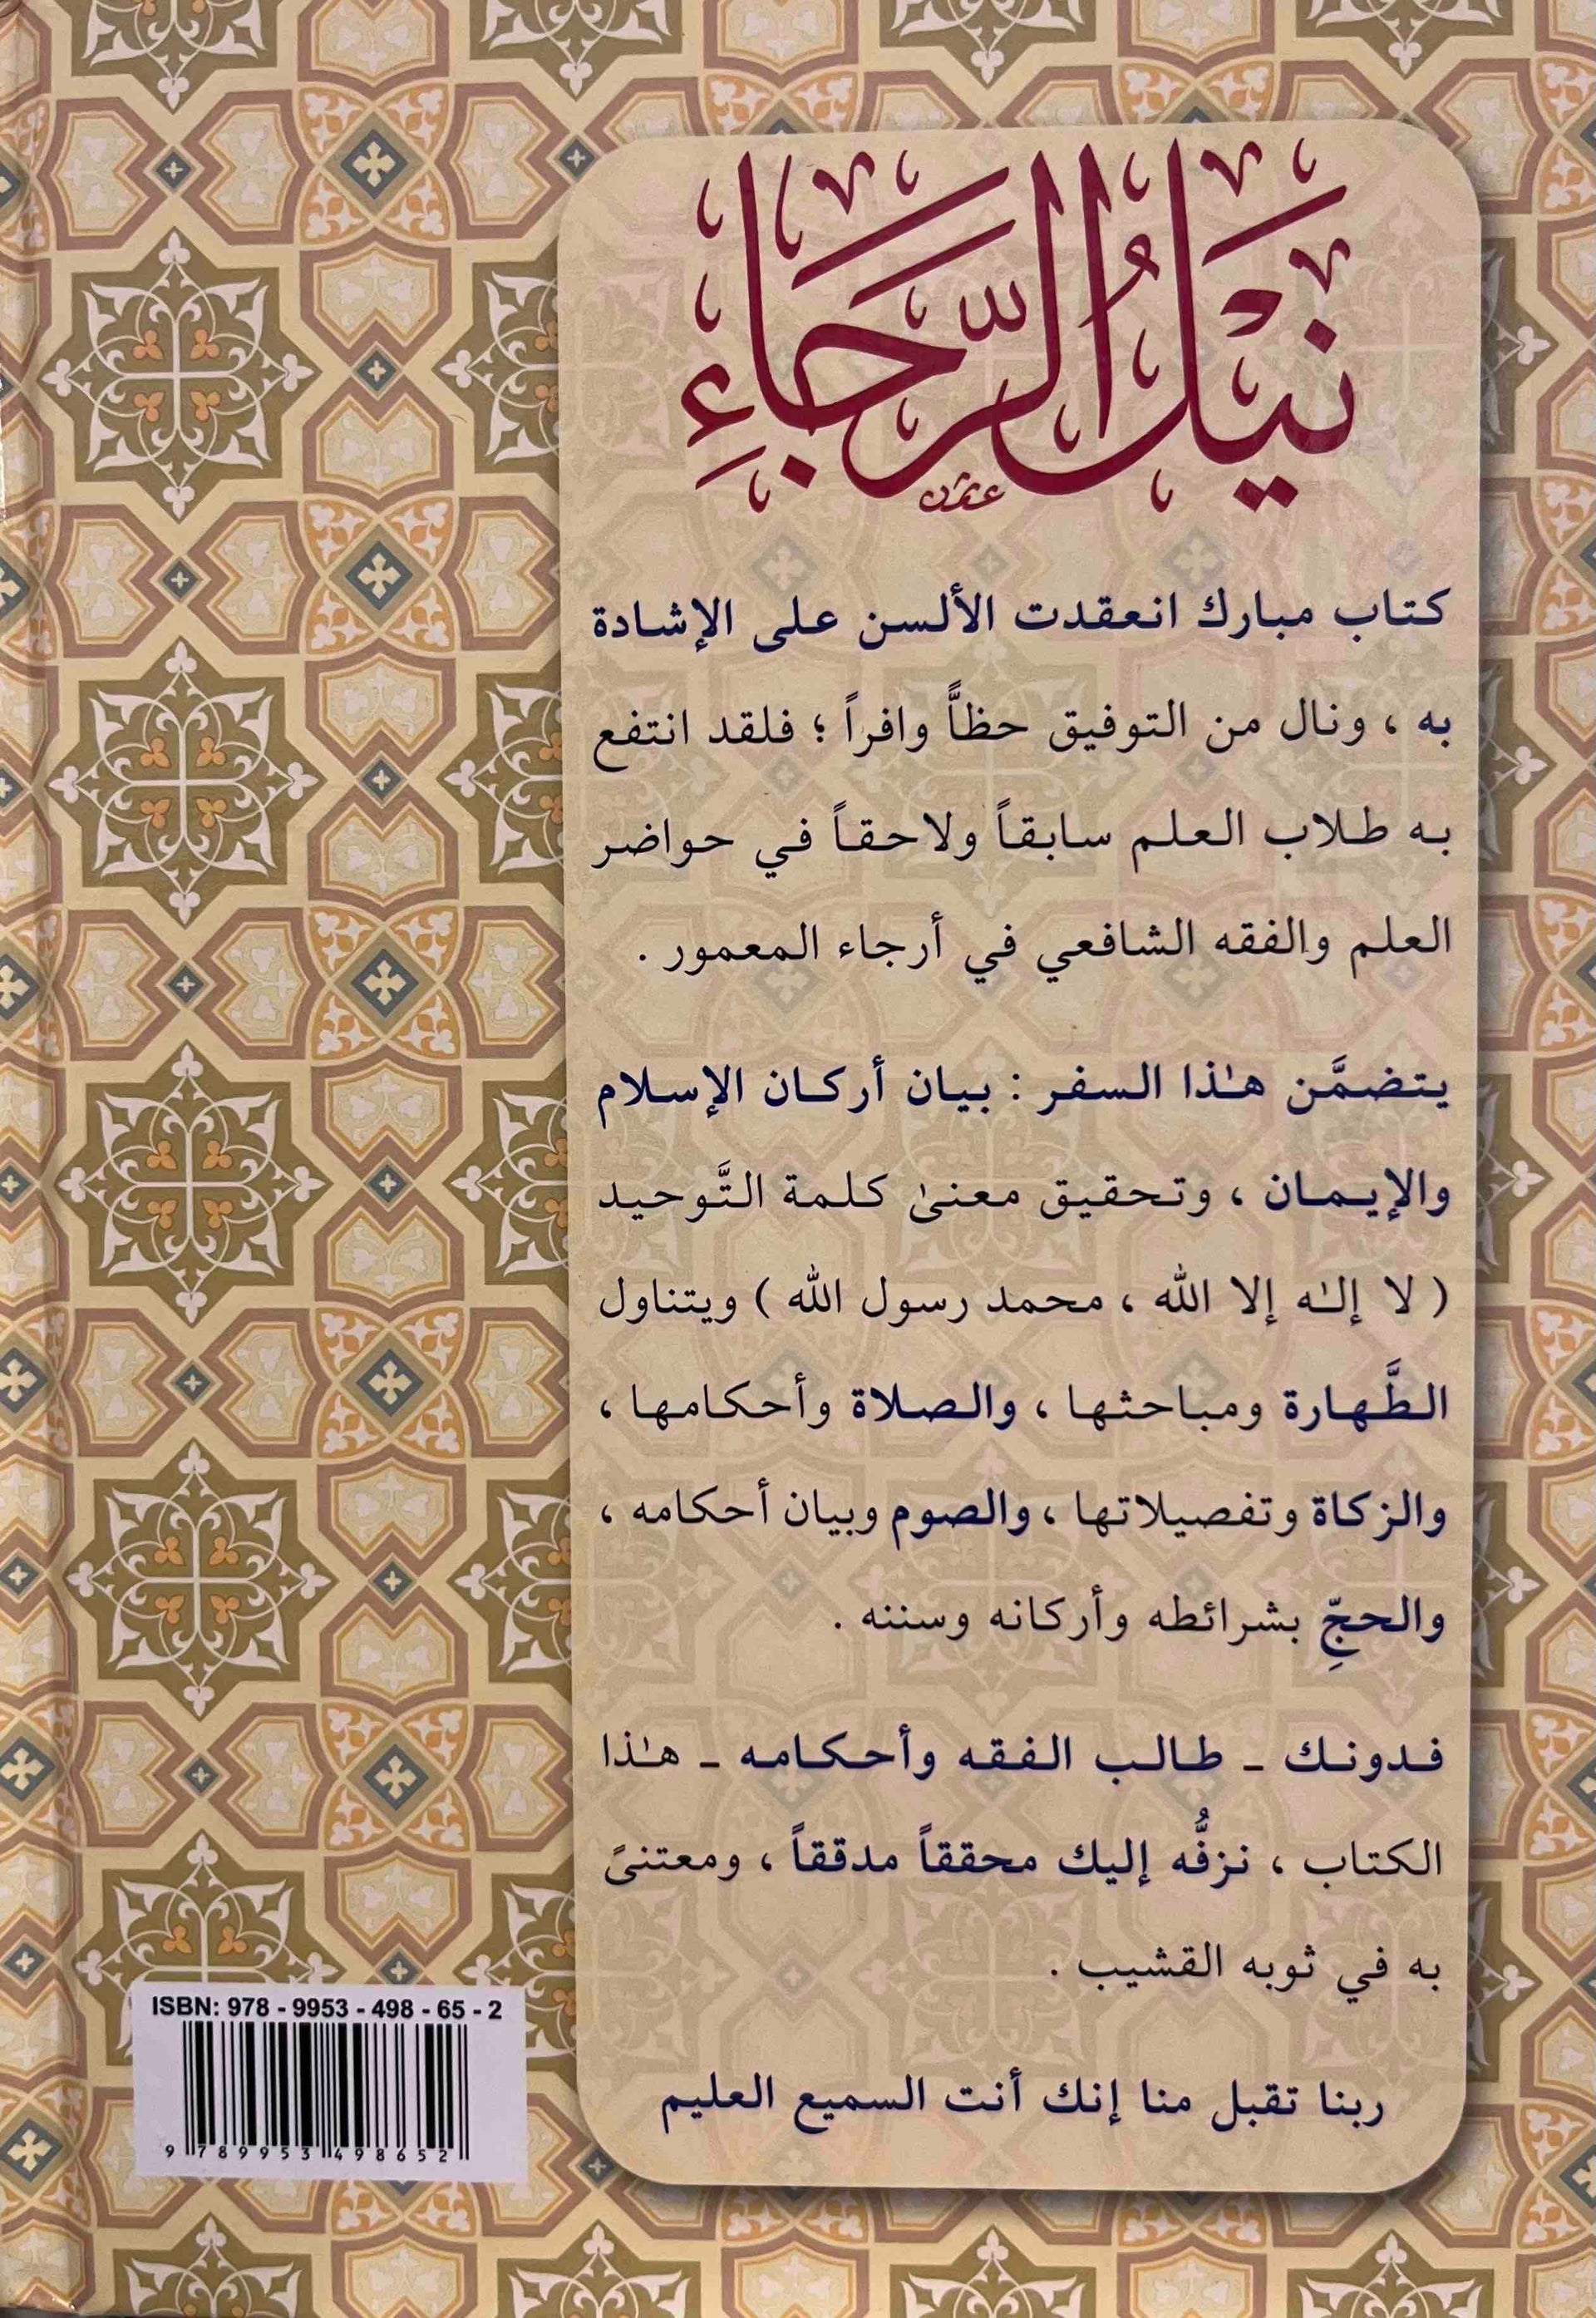 نَيْلُ الرَّجَاءِ
كتاب مبارك انعقدت الألسن على الإشادة
به ، ونال من التوفيق حظاًّ وافراً ؛ فلقد انتفع
به طلاب العلم سابقاً ولاحقاً في حواضر
العلم والفقه الشافعي في أرجاء المعمور .
يتضمَّن هـٰذا السفر : بيان أركان الإسلام
والإيمان ، وتحقيق معنىٰ كلمة التَّوحيد
( لا إلـٰه إلا الله ، محمد رسول الله ) ويتناول
الطَّهارة ومباحثها ، والصلاة وأحكامها ،
والزكاة وتفصيلاتها ، والصوم وبيان أحكامه ،
والحجِّ بشرائطه وأركانه وسننه .
فدونك ـ طالب الفقه وأحكامه ـ هـٰذا
الكتاب ، نزفُّه إليك محققاً مدققاً ، ومعتنىً
به في ثوبه القشيب .
ربنا تقبل منا إنك أنت السميع العليم
ISBN: 978 - 9953 - 498 - 65 - 2
9 789953 498652